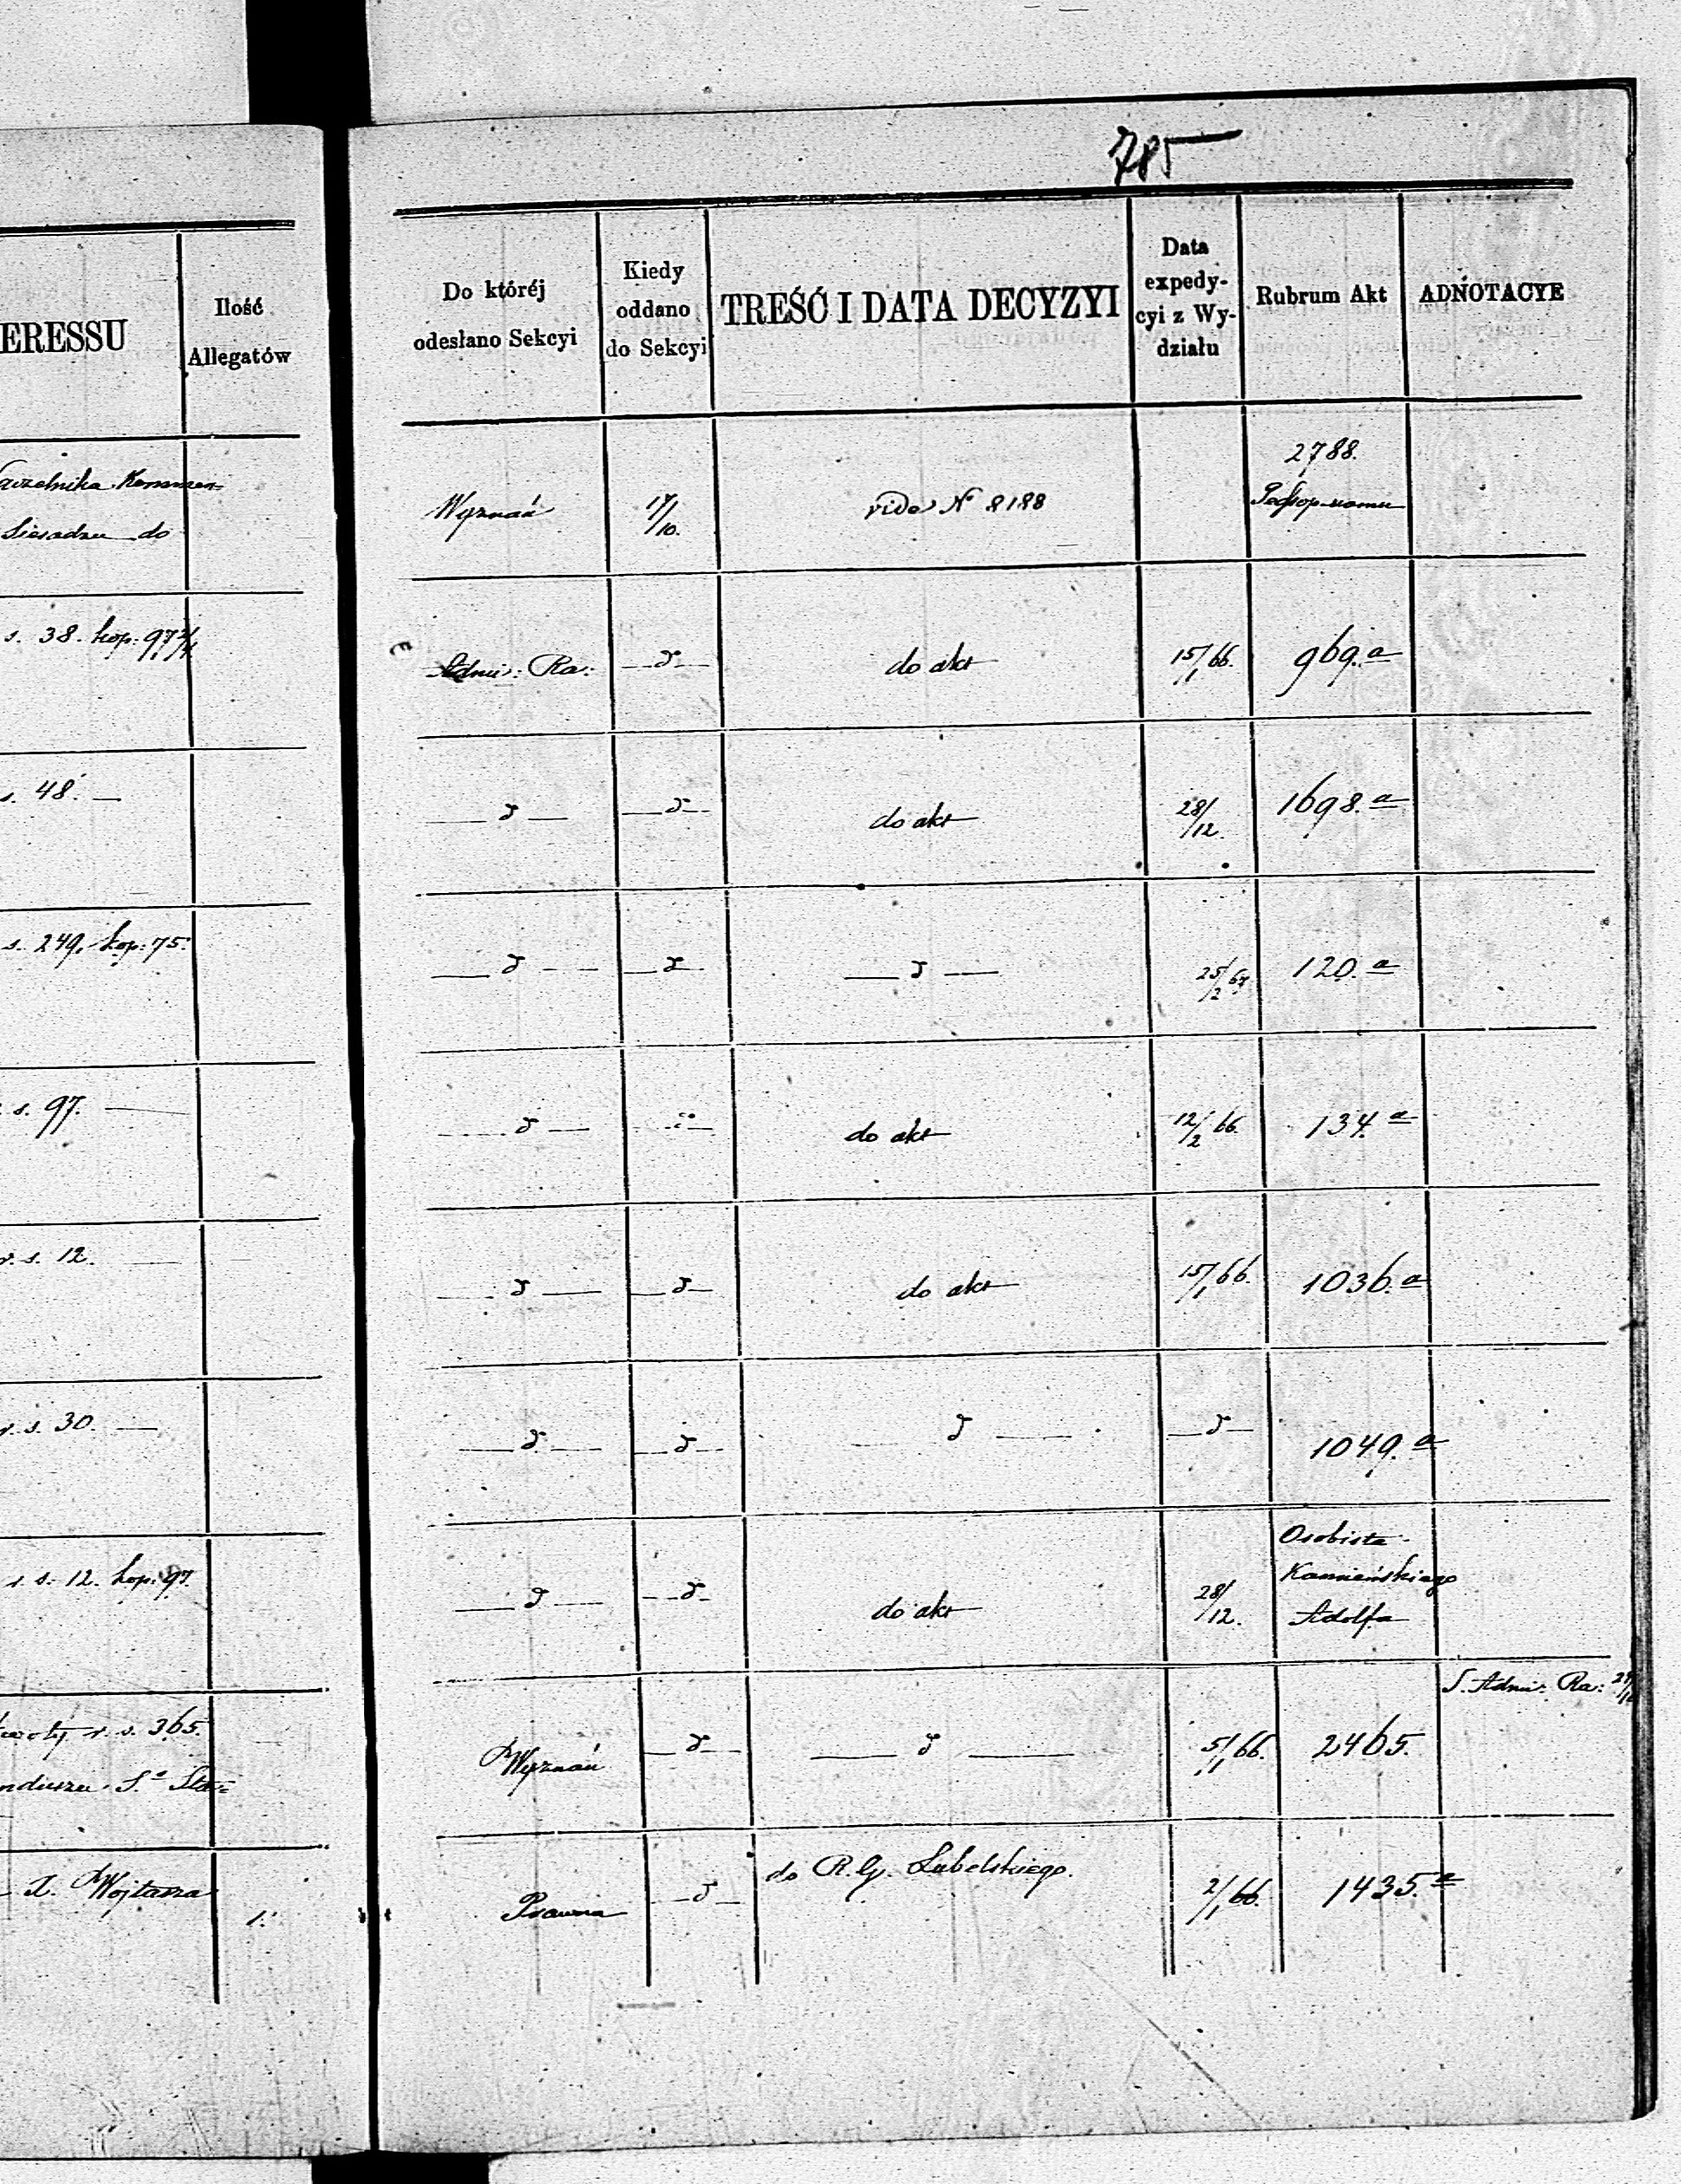 785
ERESSU
Ilość
Allegatów
Do któréj
odesłano Sekcyi
Kiedy
oddano
do Sekcyi
TREŚĆ I DATA DECYZYI
Data
expedy-
cyi z Wy-
działu
Rubrum Akt
ADNOTACYE
Sieradzu do
Wyznań
17/10.
vide N 8188
2788.
s. 38. kop: 97 3/4
Admi: Ra:
d
do akt
15/1 66.
969. a
s. 48. —
— d —
— d —
do akt
28/12.
1698. a
s. 249. kop: 75.
— d —
— d —
— d —
25/2 67
120. a
s. 97. —
— d —
do akt
12/2 66.
134. a
r. s. 12. —
— d —
— d —
do akt
15/1 66.
1036. a
r. s. 30. —
— d —
— d —
— d —
— d —
1049. a
r. s. 12. kop. 97.
— d —
— d —
do akt
28/12.
Osobiste
Kamieńskiego
Adolfa
r. s. 365.
nduszu S.o
Wyznań
— d —
— d —
5/1 66.
2465.
S. Admi: Ra:
X. Wojtasza
1.
Prawna
— d —
do R. G. Lubelskiego.
2/1 66.
1435. a